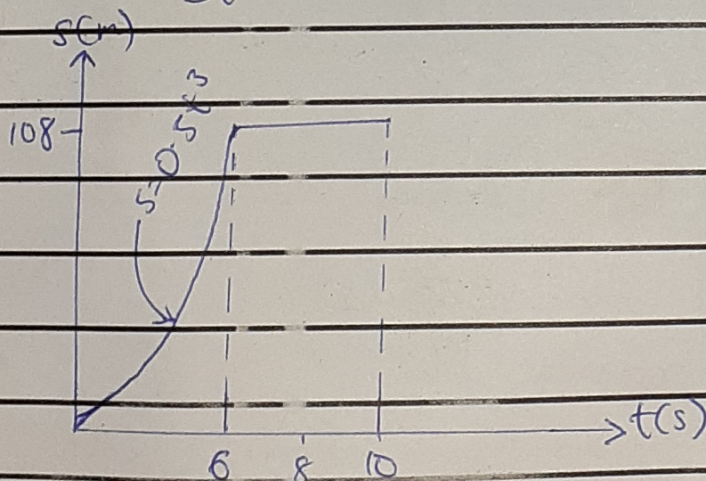 s(m)
108
s=0.5t³
6 8 10
t(s)